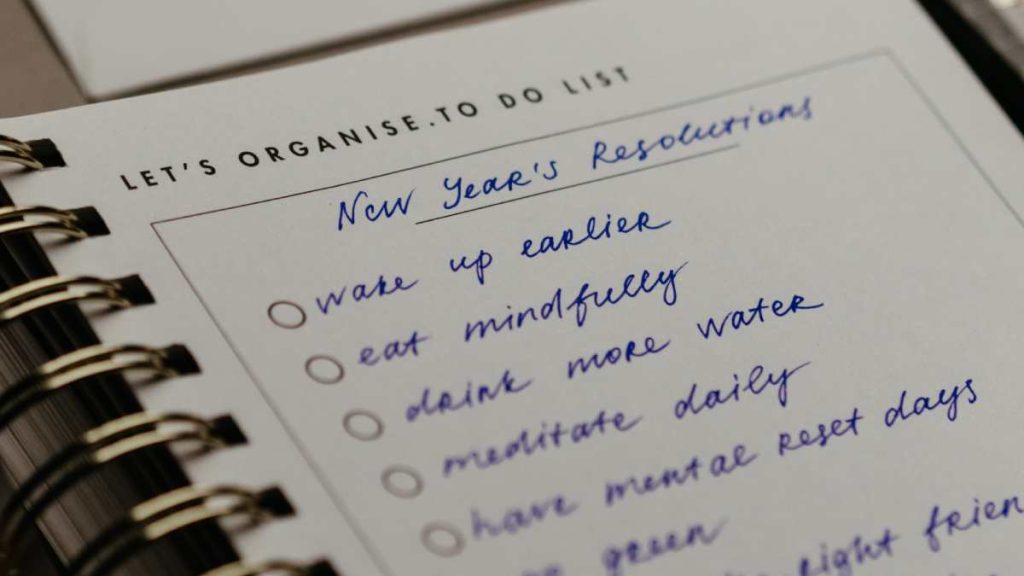 LET'S ORGANISE.TO DO LIST
New Year's Resolutions
wake up earlier
eat mindfully
drink more water
meditate daily
have mental reset days
green
right frien